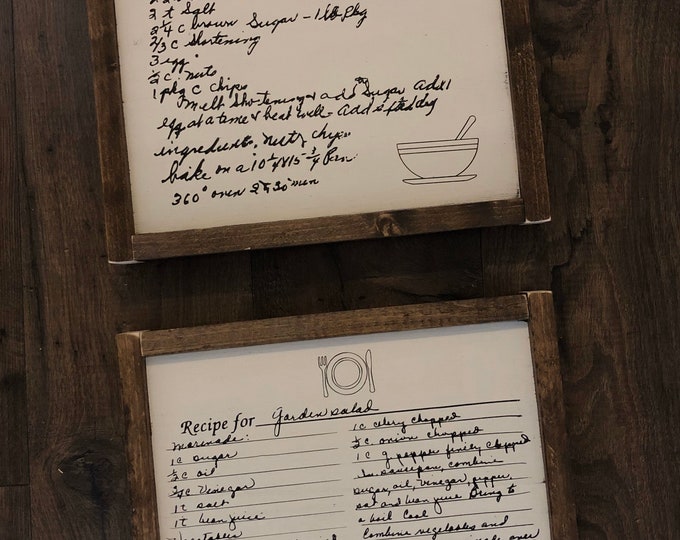 t Salt
2 1/4 c brown Sugar - 1 lb pkg
2/3 c Shortening
3 egg
1/2 c. nuts
1 pkg c chips
melt shortening & add Sugar Add 1
egg at a time & beat well - Add sifted dry
ingredients, nuts, chips
bake on a 10 1/4 x 15 3/4 Pan
360° oven 30 min
Recipe for Garden salad
marinade:
1 c sugar
1/2 c oil
Vinegar
1 t salt
1 t bean juice
Vegetables
1 c celery chopped
1/2 c onion chopped
1 c g pepper finely chopped
In saucepan, combine
sugar, oil, vinegar, pepper,
salt and bean juice Bring to
a boil Cool
Combine vegetables and
over